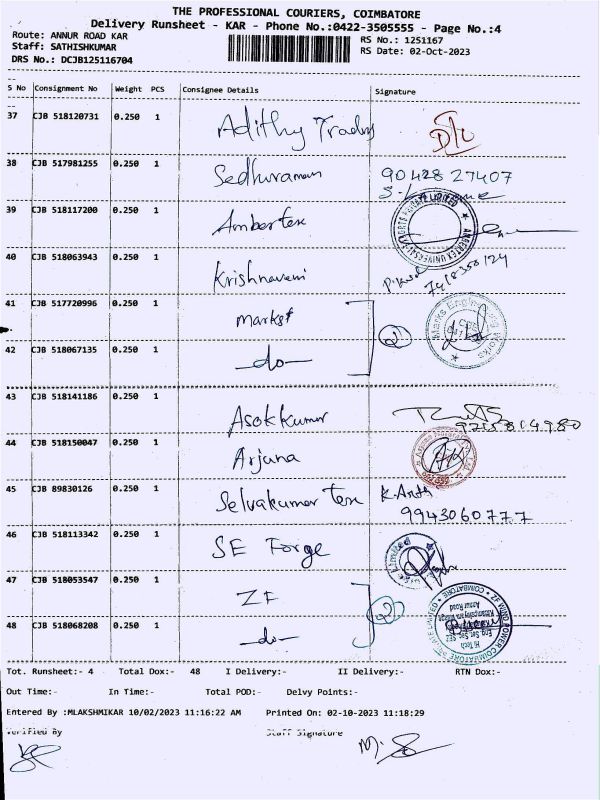 THE PROFESSIONAL COURIERS, COIMBATORE
Delivery Runsheet - KAR - Phone No.:0422-3505555 - Page No.:4
Route: ANNUR ROAD KAR RS No.: 1251167
Staff: SATHISHKUMAR RS Date: 02-Oct-2023
DRS No.: DCJB125116704
S No Consignment No Weight PCS Consignee Details Signature
37 CJB 518120731 0.250 1 Adithy Traders
38 CJB 517981255 0.250 1 Sedhuraman 90428 27407
39 CJB 518117200 0.250 1 Ambertex
40 CJB 518063943 0.250 1 Krishnaveni
41 CJB 517720996 0.250 1 Marks Engineering Works
42 CJB 518067135 0.250 1 -do- 2
43 CJB 518141186 0.250 1 Asokkumar
44 CJB 518150047 0.250 1 Arjuna
45 CJB 89830126 0.250 1 Selvakumar tex K.Anth
9943060777
46 CJB 518113342 0.250 1 SE Forge
47 CJB 518053547 0.250 1 ZF
48 CJB 518068208 0.250 1 -do- 2
ZF WIND POWER COIMBATORE PRIVATE LIMITED COIMBATORE
Tot. Runsheet:- 4 Total Dox:- 48 I Delivery:- II Delivery:- RTN Dox:-
Out Time:- In Time:- Total POD:- Delvy Points:-
Entered By :MLAKSHMIKAR 10/02/2023 11:16:22 AM Printed On: 02-10-2023 11:18:29
Verified By Staff Signature